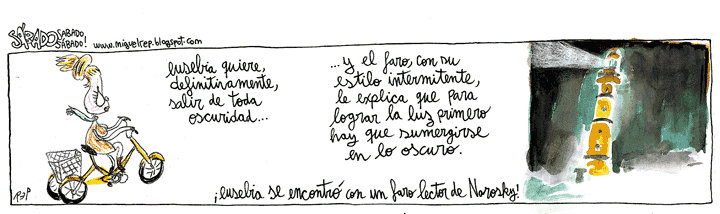 SÁPADO SABADO SÁBADO!
www.miguelrep.blogspot.com
eusebia quiere,
definitivamente,
salir de toda
oscuridad...
...y el faro, con su
estilo intermitente,
le explica que para
lograr la luz primero
hay que sumergirse
en lo oscuro.
¡eusebia se encontró con un faro lector de Narosky!
REP